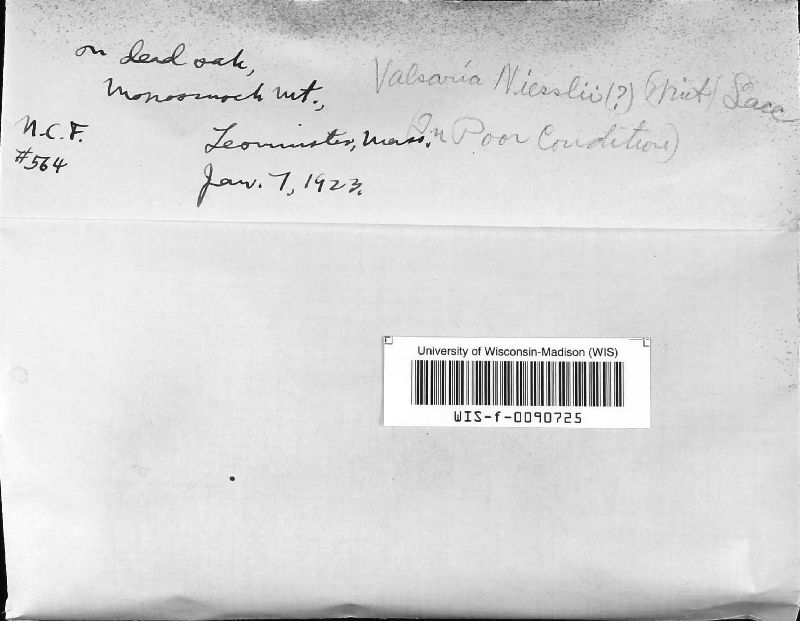 on dead oak,
Monoosnock Mt.,
Valsaria Niesslii(?) (Wint) Sacc
(In Poor Condition)
N.C.F.
#564
Leominster, Mass.
Jan. 7, 1923.
University of Wisconsin-Madison (WIS)
WIS-f-0090725